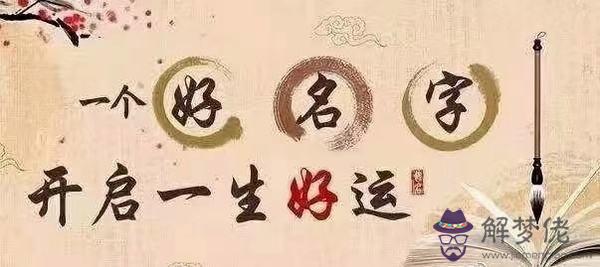 一个好名字
开启一生好运
解梦佬